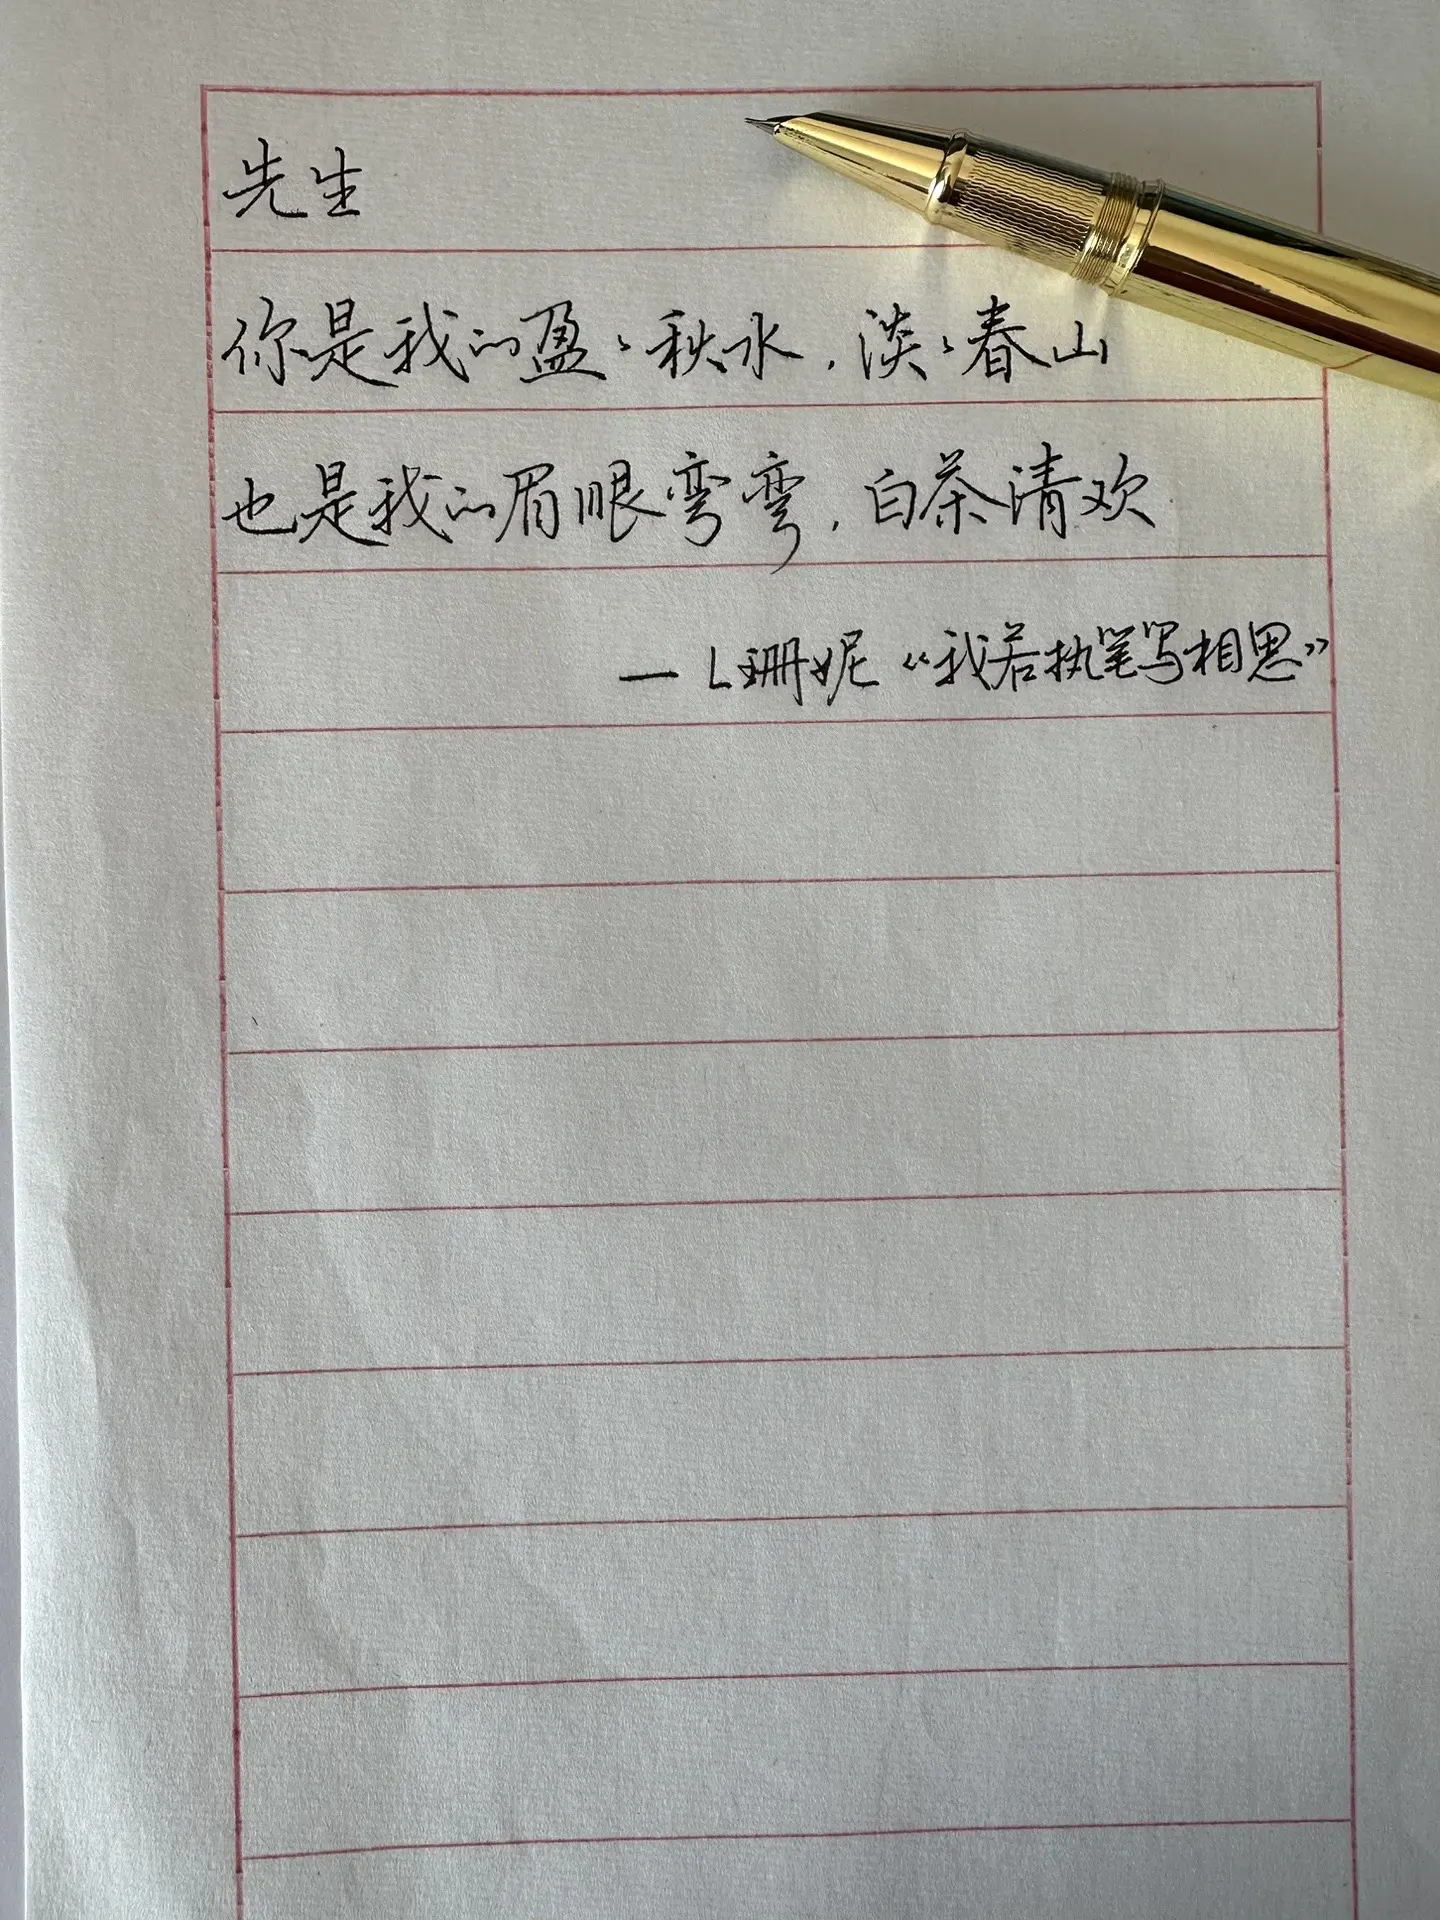 先生
你是我的盈盈秋水，淡淡春山
也是我的眉眼弯弯，白茶清欢
— L珊妮《我若执笔写相思》